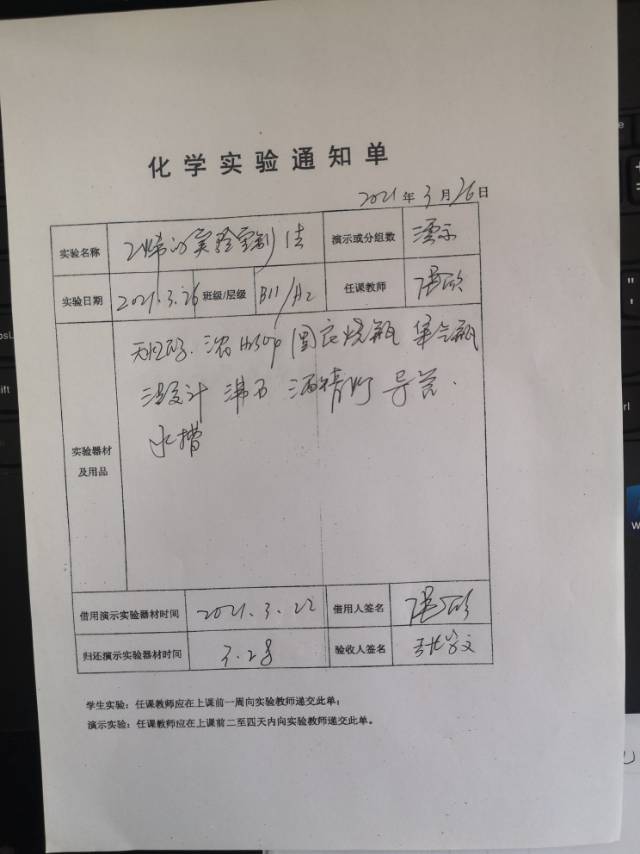 化学实验通知单
2021年3月26日
实验名称 乙烯的实验室制法 演示或分组数 演示
实验日期 2021.3.26 班级/层级 B11/A2 任课教师
无水乙醇. 浓H2SO4 圆底烧瓶 集气瓶
温度计 沸石 酒精灯 导管.
水槽
实验器材
及用品
借用演示实验器材时间 2021.3.22 借用人签名
归还演示实验器材时间 3.28 验收人签名
学生实验：任课教师应在上课前一周向实验教师递交此单；
演示实验：任课教师应在上课前二至四天内向实验教师递交此单。